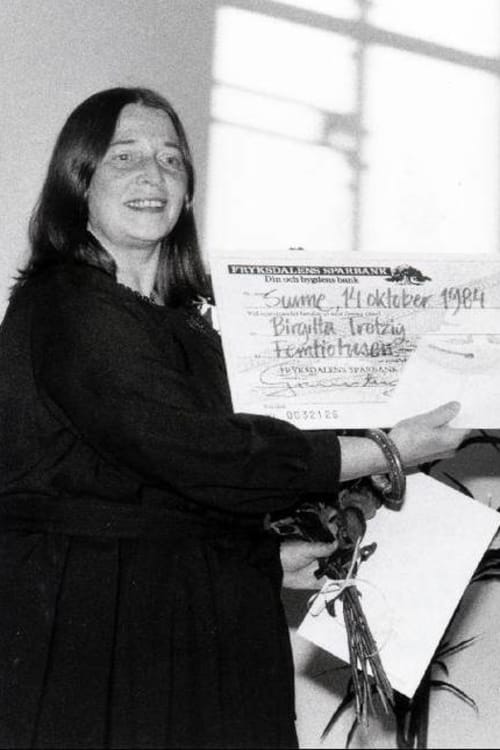 FRYKSDALENS SPARBANK
Din och bygdens bank
Sunne, 14 oktober 1984
Birgitta Trotzig
Femtiotusen
FRYKSDALENS SPARBANK
0032126